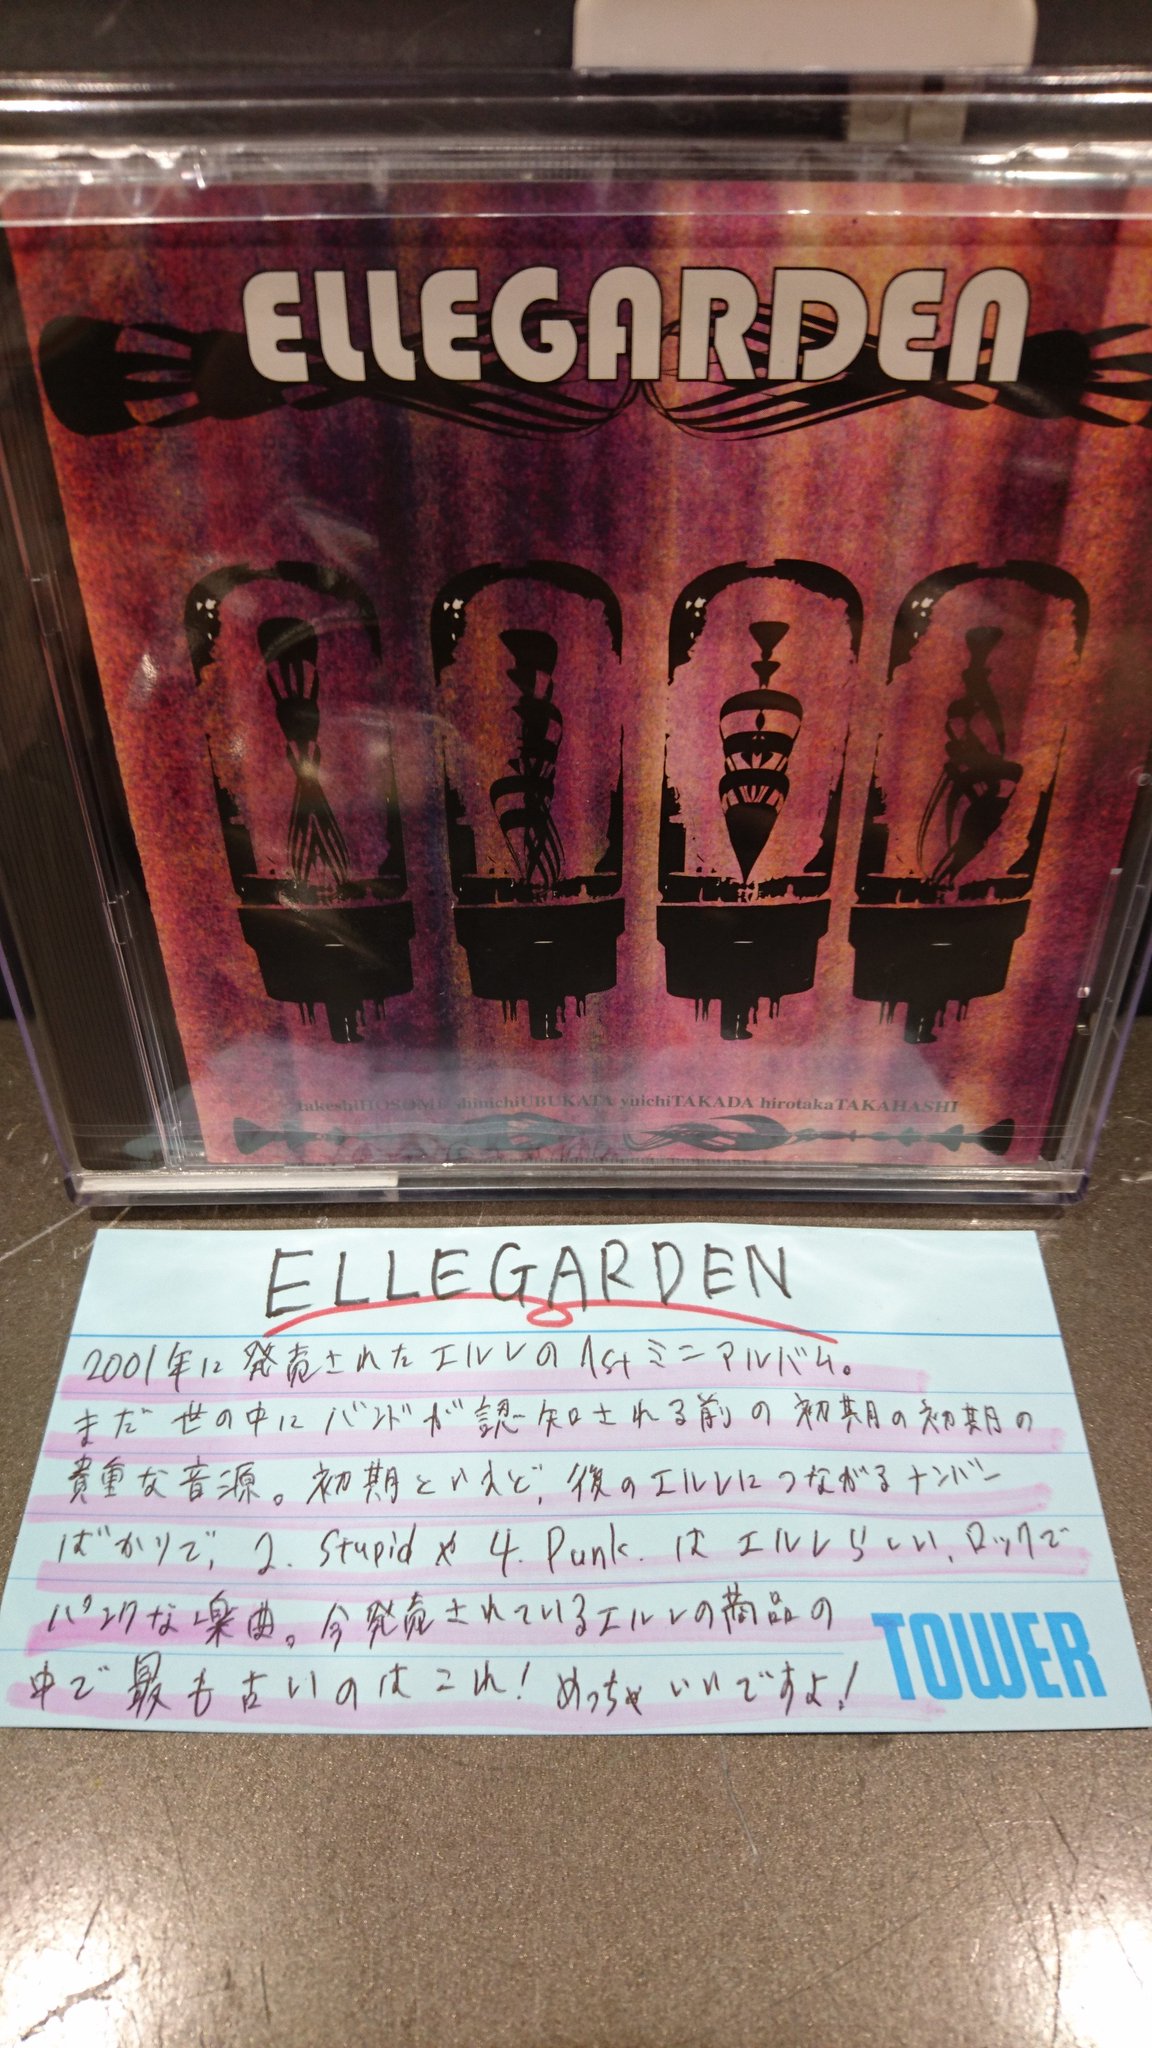 ELLEGARDEN
takeshiHOSOMI shinichiUBUKATA yuichiTAKADA hirotakaTAKAHASHI
ELLEGARDEN
2001年に発売されたエルレの1stミニアルバム。
まだ世の中にバンドが認知される前の初期の初期の
貴重な音源。初期といえど、後のエルレにつながるナンバー
ばかりで、2. Stupidや4. Punk.はエルレらしい、ロックで
パンクな楽曲。今発売されているエルレの商品の
中で最も古いのはこれ！めっちゃいいですよ！
TOWER